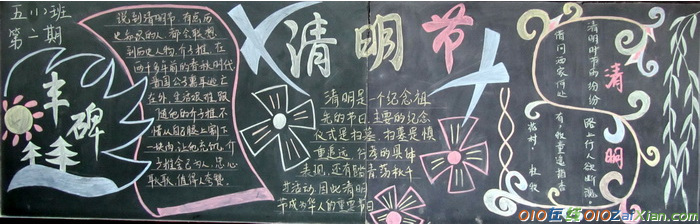 五(12)班
第二期
丰碑
说到清明节,有点历
史知识的人,都会联想
到历史人物介子推。在
两千多年前的春秋时代
晋国公子重耳逃亡
在外,生活艰难,跟
随他的介子推不
惜从自己腿上割下
一块肉让他充饥。介
子推舍己为人,忠心
耿耿,值得人夸赞。
清明节
清明是一个纪念祖
先的节日。主要的纪念
仪式是扫墓,扫墓是慎
重追远、行孝的具体
表现,还有踏青荡秋千
等活动,因此清明
节成为华人的重要节日
清明
清明时节雨纷纷
路上行人欲断魂
借问酒家何处
有 牧童遥指杏
花村
杜牧
010在线010zaixian.com